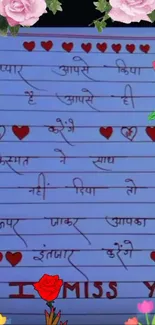 प्यार आपसे किया
है आपसे ही
करेंगे
किस्मत ने साथ
नहीं दिया तो
ऊपर जाकर आपका
इंतजार करेंगे
I MISS Y